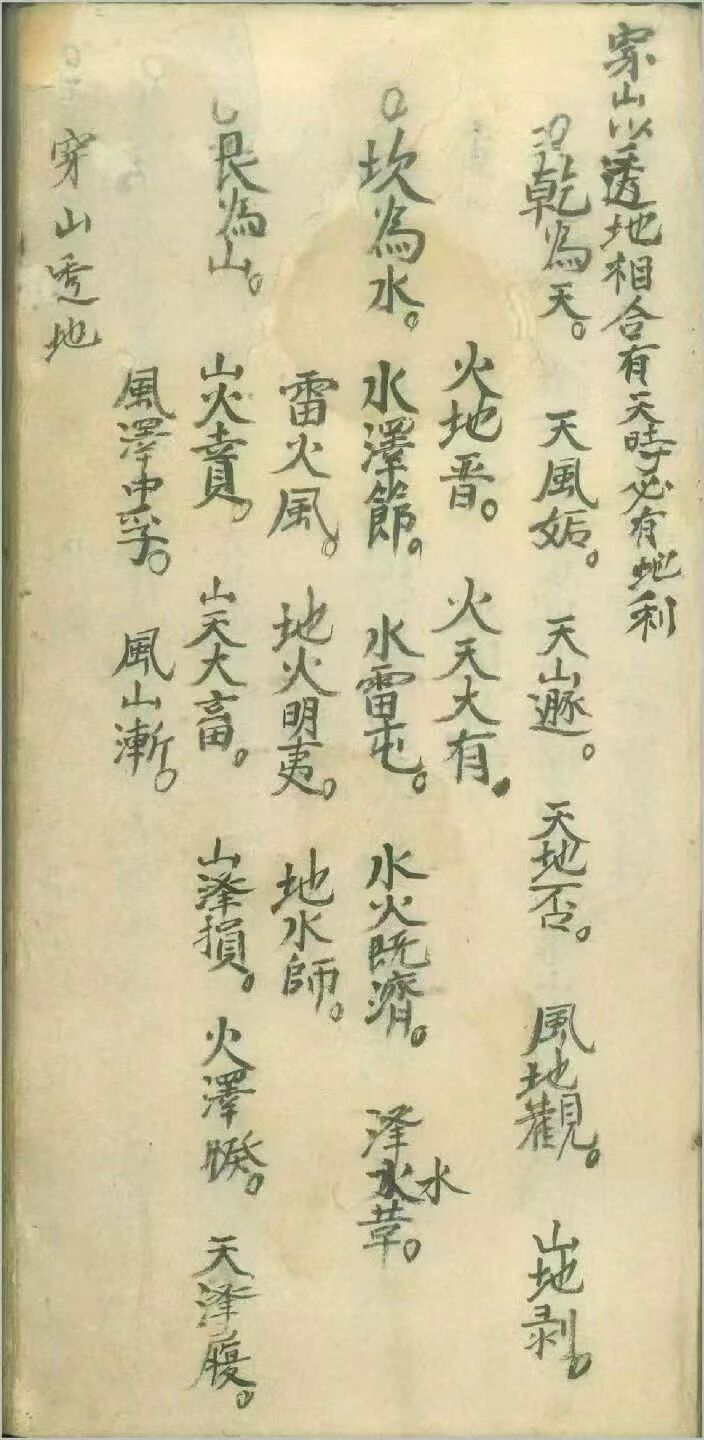 穿山以透地相合有天時必有地利
乾為天。天風姤。天山遯。天地否。風地觀。山地剥。
火地晋。火天大有。
坎為水。水澤節。水雷屯。水火既濟。泽水革。
水
雷火風。地火明夷。地水師。
艮為山。山火賁。山天大畜。山泽損。火澤睽。天泽履。
風澤中孚。風山漸。
穿山透地